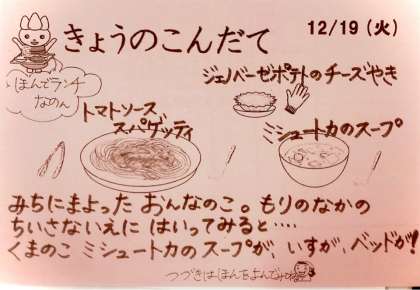 きょうのこんだて
12/19（火）
ほんでランチ
なのん
ジェノベーゼポテトのチーズやき
トマトソース
スパゲッティ
ミシュートカのスープ
みちにまよった おんなのこ。もりのなかの
ちいさないえに はいってみると‥‥
くまのこ ミシュートカの スープが、いすが、ベッドが!!
つづきは ほんをよんでみてね